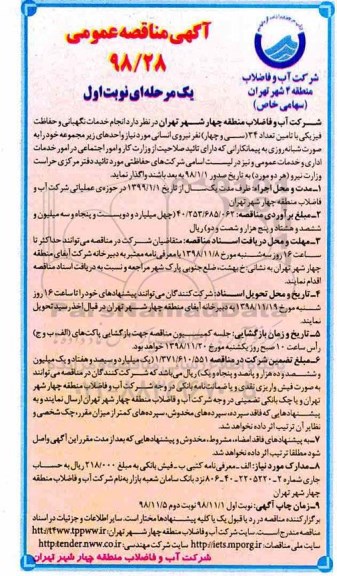 آگهی مناقصه عمومی
۹۸/۲۸
یک مرحله‌ای نوبت اول
شرکت آب و فاضلاب
منطقه ۴ شهر تهران
(سهامی خاص)
شــرکت آب و فاضلاب منطقه چهار شــهر تهران در نظر دارد انجام خدمات نگهبانی و حفاظت
فیزیکی با تامین تعداد ۳۴ (سی و چهار) نفر نیروی انسانی مورد نیاز واحدهای زیر مجموعه خود را به
صورت شبانه روزی به پیمانکارانی که دارای تائید صلاحیت از وزارت کار و امور اجتماعی در امور خدمات
اداری و خدمات عمومی و نیز در لیست اسامی شرکت‌های حفاظتی مورد تائید دفتر مرکزی حراست
وزارت نیرو (هر دو مورد) به تاریخ صدور ۹۸/۱/۱ به بعد باشند واگذار نماید.
۱-مدت و محل اجرا: ظرف مدت یک سال از تاریخ ۱۳۹۹/۱/۱ در حوزه‌ی عملیاتی شرکت آب و
فاضلاب منطقه چهار شهر تهران
۲-مبلغ برآوردی مناقصه: ۴۰/۲۵۳/۶۸۵/۰۶۲ (چهل میلیارد و دویست و پنجاه و سه میلیون و
ششصد و هشتاد و پنج هزار و شصت و دو) ریال
۳-مهلت و محل دریافت اسناد مناقصه: متقاضیان شــرکت در مناقصه می‌توانند حداکثر تا
ساعت ۱۶ روز سه‌شنبه مورخ ۱۳۹۸/۱۱/۸ با معرفی‌نامه معتبر به دبیرخانه شرکت آبفای منطقه
چهار شهر تهران به نشانی: خ بهشت، ضلع جنوبی پارک شهر مراجعه و نسبت به دریافت اسناد مناقصه
اقدام نمایند.
۴-تاریخ و محل تحویل اســناد: شرکت‌کنندگان می‌توانند پیشنهادهای خود را تا ساعت ۱۶ روز
شنبه مورخ ۱۳۹۸/۱۱/۱۹ به دبیرخانه آبفای منطقه چهار شــهر تهران در قبال اخذ رسید تحویل
نمایند.
۵-تاریخ و زمان بازگشایی: جلسه کمیسیون مناقصه جهت بازگشایی پاکت‌های (الف، ب و ج)
راس ساعت ۱۰ صبح روز یکشنبه مورخ ۱۳۹۸/۱۱/۲۰ خواهد بود.
۶-مبلغ تضمین شرکت در مناقصه: ۱/۳۷۱/۶۱۰/۵۵۱ (یک میلیارد و سیصد و هفتاد و یک میلیون
و ششصد و ده هزار و پانصد و پنجاه و یک) ریال می‌باشد که شــرکت‌کنندگان در مناقصه می‌توانند
به صورت فیش واریزی نقدی و یا ضمانت‌نامه بانکی در وجه شرکت آب و فاضلاب منطقه چهار شهر
تهران و یا چک بانکی تضمینی در وجه شرکت آب و فاضلاب منطقه چهار شهر تهران ارسال نمایند و به
پیشنهادهایی که فاقد سپرده، سپرده‌های مخدوش، سپرده‌های کمتر از میزان مقرر، چک شخصی و
نظایر آن ترتیب اثر داده نخواهد شد.
۷-به پیشنهادهای فاقد امضاء، مشروط، مخدوش و پیشنهادهایی که بعد از مدت مقرر این آگهی واصل
شود مطلقا ترتیب اثر داده نخواهد شد.
۸-مدارک مورد نیاز: الف-معرفی‌نامه کتبی ب-فیش بانکی به مبلغ ۲۱۸/۰۰۰ ریال به حساب
چهار شهر تهران
۹-زمان چاپ آگهی: نوبت اول ۹۸/۱۱/۱ نوبت دوم ۹۸/۱۱/۵
برگزارکننده مناقصه در رد یا قبول یک یا کلیه پیشنهادها مختار است. سایر اطلاعات و جزئیات در اسناد
مناقصه مندرج است. سایت شرکت آب و فاضلاب منطقه چهار شهر تهران: http://t4www.tpww.ir
سایت ملی مناقصات: http://iets.mporg.ir سایت شرکت مهندسی: http:tender.nww.co.ir
شرکت آب و فاضلاب منطقه چهار شهر تهران